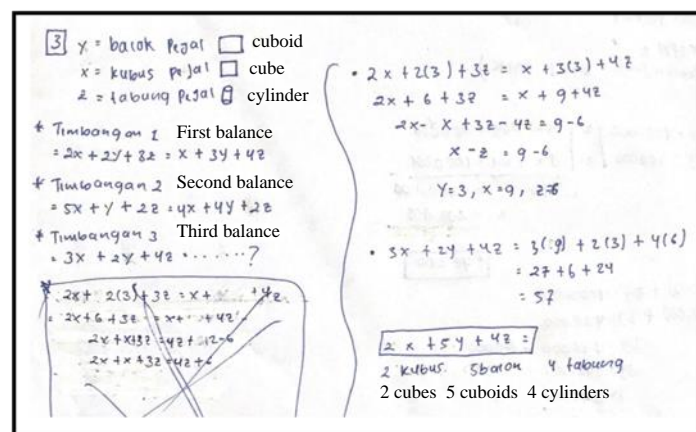 3 y = balok pejal cuboid
x = kubus pejal cube
z = tabung pejal cylinder
* Timbangan 1 First balance
= 2x + 2y + 3z = x + 3y + 4z
* Timbangan 2 Second balance
= 5x + y + 2z = 4x + 4y + 2z
* Timbangan 3 Third balance
= 3x + 2y + 4z = ......?
2x + 2(3) + 3z = x + + 4z
= 2x + 6 + 3z = x + + 4z
2x + x + 3z = 4z + 6
• 2x + 2(3) + 3z = x + 3(3) + 4z
2x + 6 + 3z = x + 9 + 4z
2x - x + 3z - 4z = 9 - 6
x - z = 9 - 6
y = 3, x = 9, z = 6
• 3x + 2y + 4z = 3(9) + 2(3) + 4(6)
= 27 + 6 + 24
= 57
2x + 5y + 4z =
2 kubus 5 balok 4 tabung
2 cubes 5 cuboids 4 cylinders